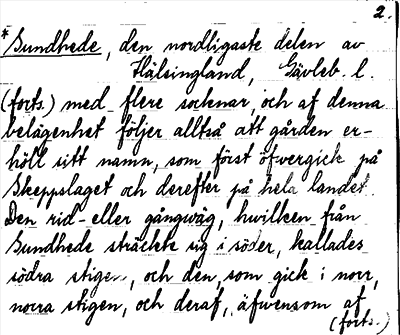 2.
* Sundhede, den nordligaste delen av
Hälsingland, Gävleb. l.
(forts.) med flere socknar, och af denna
belägenhet följer alltså att gården er-
höll sitt namn, som först öfwergick på
Skeppslaget och derefter på hela landet.
Den rid- eller gångwäg, hwilken från
Sundhede sträckte sig i söder, kallades
södra stigen, och den, som gick i norr,
norra stigen, och deraf, äfwensom af
(forts.)